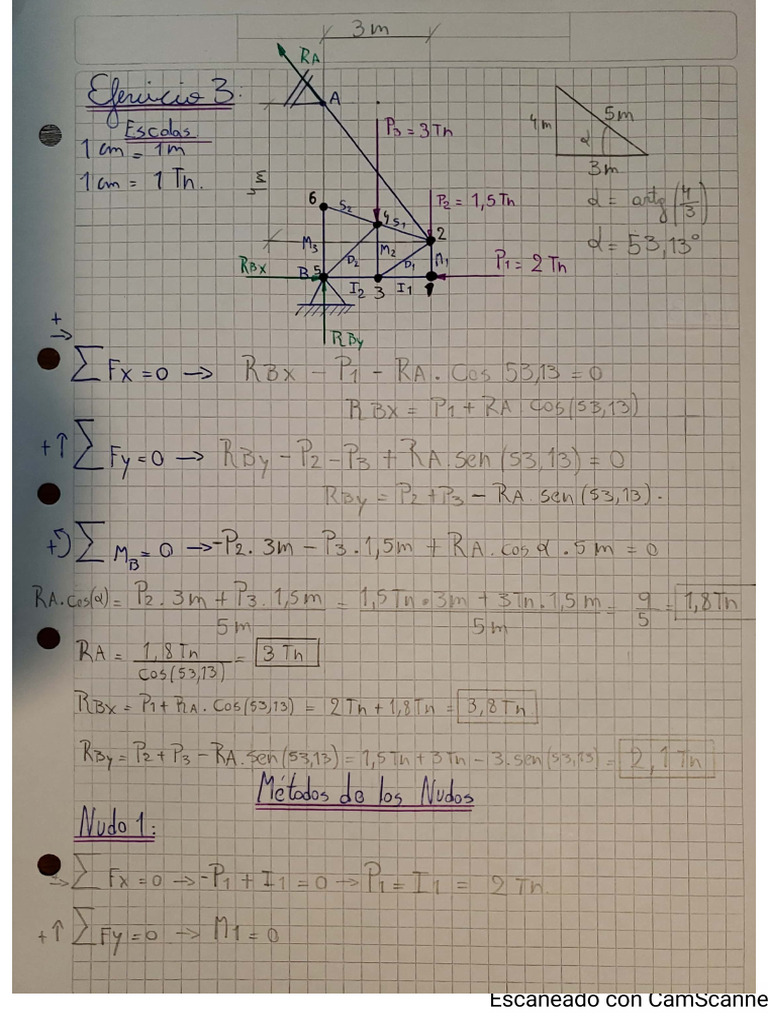 3m
RA
Ejercicio 3:
A
Escalas
1 cm = 1m
1 cm = 1 Tn.
P3 = 3Tn
4m
5m
α
3m
α = artg (4/3)
α = 53,13°
6
S2
4
S1
P2 = 1,5Tn
2
M3
M2
D2
D1
M1
P1 = 2 Tn
RBx
B
5
I2
3
I1
1
RBy
+→
∑Fx = 0 → RBx - P1 - RA. Cos 53,13 = 0
RBx = P1 + RA cos(53,13)
+↑ ∑Fy = 0 → RBy - P2 - P3 + RA. sen (53,13) = 0
RBy = P2 + P3 - RA. sen (53,13).
+↺ ∑MB = 0 → -P2. 3m - P3. 1,5m + RA. cos α . 5m = 0
RA.cos(α) = P2. 3m + P3. 1,5m / 5m = 1,5Tn • 3m + 3Tn. 1,5m / 5m = 9/5 = 1,8Tn
RA = 1,8 Tn / cos(53,13) = 3 Tn
RBx = P1 + RA. Cos(53,13) = 2 Tn + 1,8Tn = 3,8Tn
RBy = P2 + P3 - RA. sen(53,13) = 1,5Tn + 3Tn - 3. sen(53,13) = 2,1Tn
Métodos de los Nudos
Nudo 1:
→ ∑Fx = 0 → -P1 + I1 = 0 → P1 = I1 = 2 Tn.
+↑ ∑Fy = 0 → M1 = 0
Escaneado con CamScanne